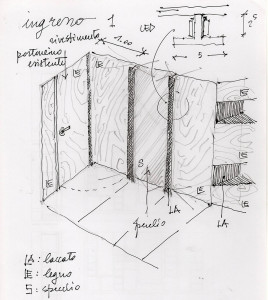 ingresso 1
LED
rivestimento
portoncino
esistente
1.00
5
2.5
E
E
E
E
E
E
E
S
A
LA
LA
specchio
LA : laccato
E : legno
S : specchio